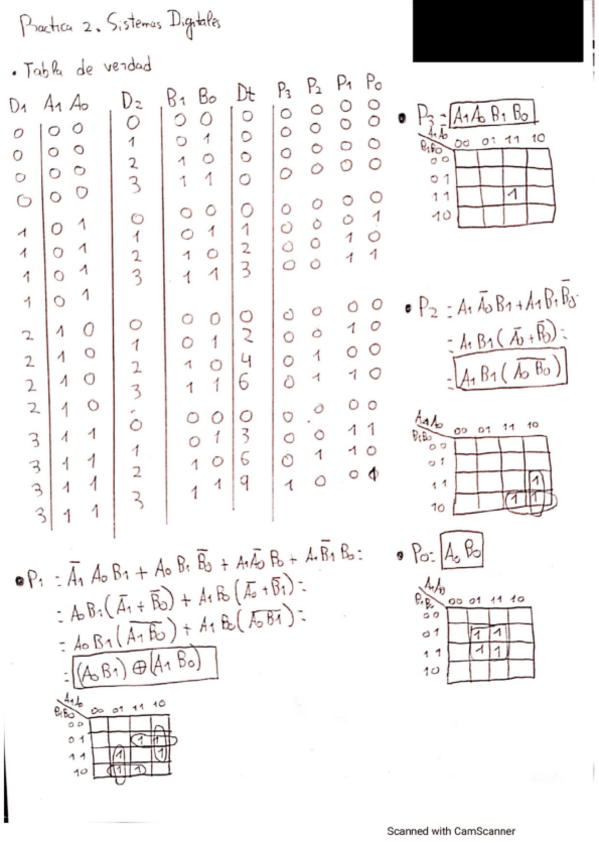 Practica 2. Sistemas Digitales
• Tabla de verdad
D1 A1 A0 D2 B1 B0 Dt P3 P2 P1 P0
0 0 0 0 0 0 0 0 0 0 0
0 0 0 1 0 1 0 0 0 0 0
0 0 0 2 1 0 0 0 0 0 0
0 0 0 3 1 1 0 0 0 0 0
1 0 1 0 0 0 0 0 0 0 0
1 0 1 1 0 1 1 0 0 0 1
1 0 1 2 1 0 2 0 0 1 0
1 0 1 3 1 1 3 0 0 1 1
2 1 0 0 0 0 0 0 0 0 0
2 1 0 1 0 1 2 0 0 1 0
2 1 0 2 1 0 4 0 1 0 0
2 1 0 3 1 1 6 0 1 1 0
3 1 1 0 0 0 0 0 0 0 0
3 1 1 1 0 1 3 0 0 1 1
3 1 1 2 1 0 6 0 1 1 0
3 1 1 3 1 1 9 1 0 0 1
• P3 = A1 A0 B1 B0
A1A0
B1B0 00 01 11 10
00
01
11 1
10
• P2 = A1 A̅0 B1 + A1 B1 B̅0 =
= A1 B1 (A̅0 + B̅0) =
= A1 B1 (A̅0̅ ̅B̅0̅)
A1A0
B1B0 00 01 11 10
00
01
11 1
10 1 1
• P1 = A̅1 A0 B1 + A0 B1 B̅0 + A1 A̅0 B0 + A1 B̅1 B0 =
= A0 B1 (A̅1 + B̅0) + A1 B0 (A̅0 + B̅1) =
= A0 B1 (A̅1̅ ̅B̅0̅) + A1 B0 (A̅0̅ ̅B̅1̅) =
= (A0 B1) ⊕ (A1 B0)
A1A0
B1B0 00 01 11 10
00
01 1 1
11 1 1
10 1 1
• P0 = A0 B0
A1A0
B1B0 00 01 11 10
00
01 1 1
11 1 1
10
Scanned with CamScanner